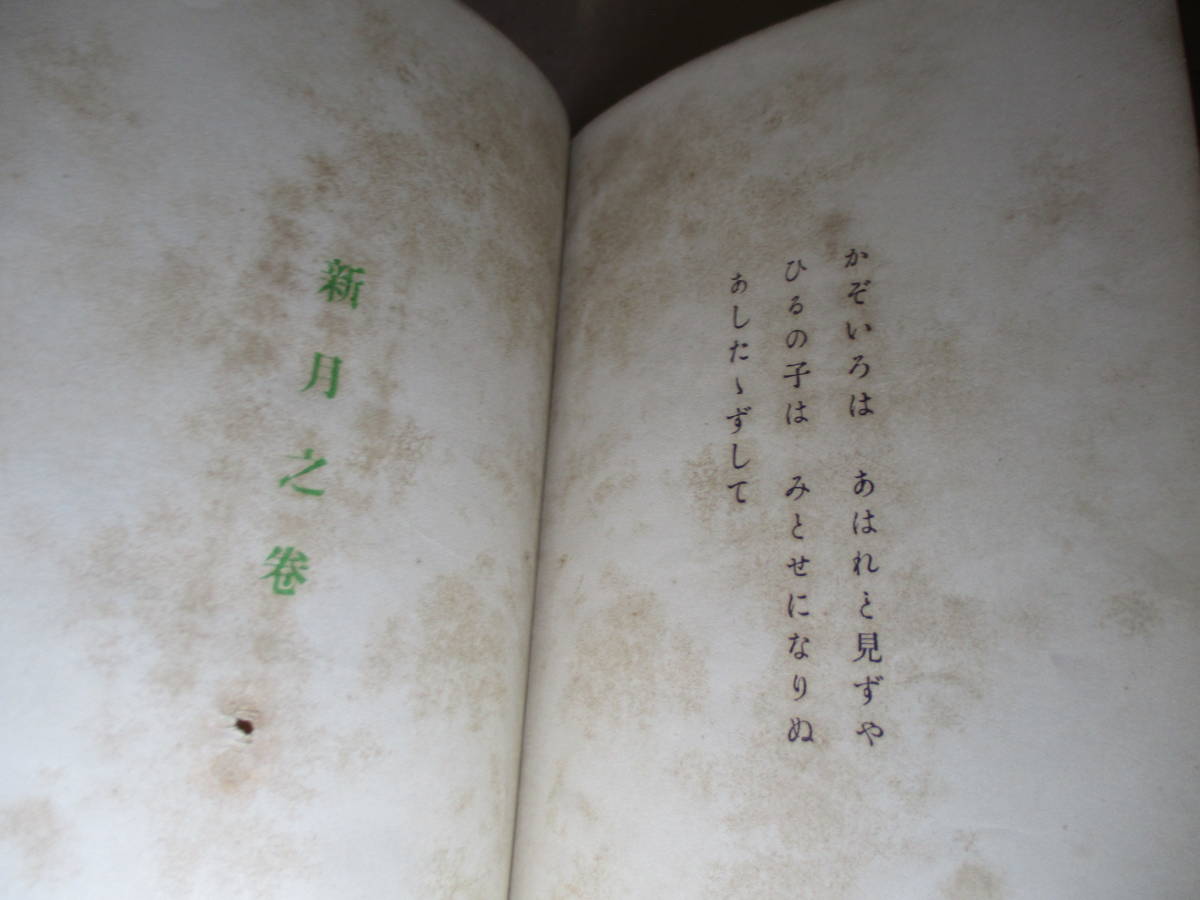 かぞいろは　あはれと見ずや
ひるの子は　みとせになりぬ
あしたゝずして
新月之巻